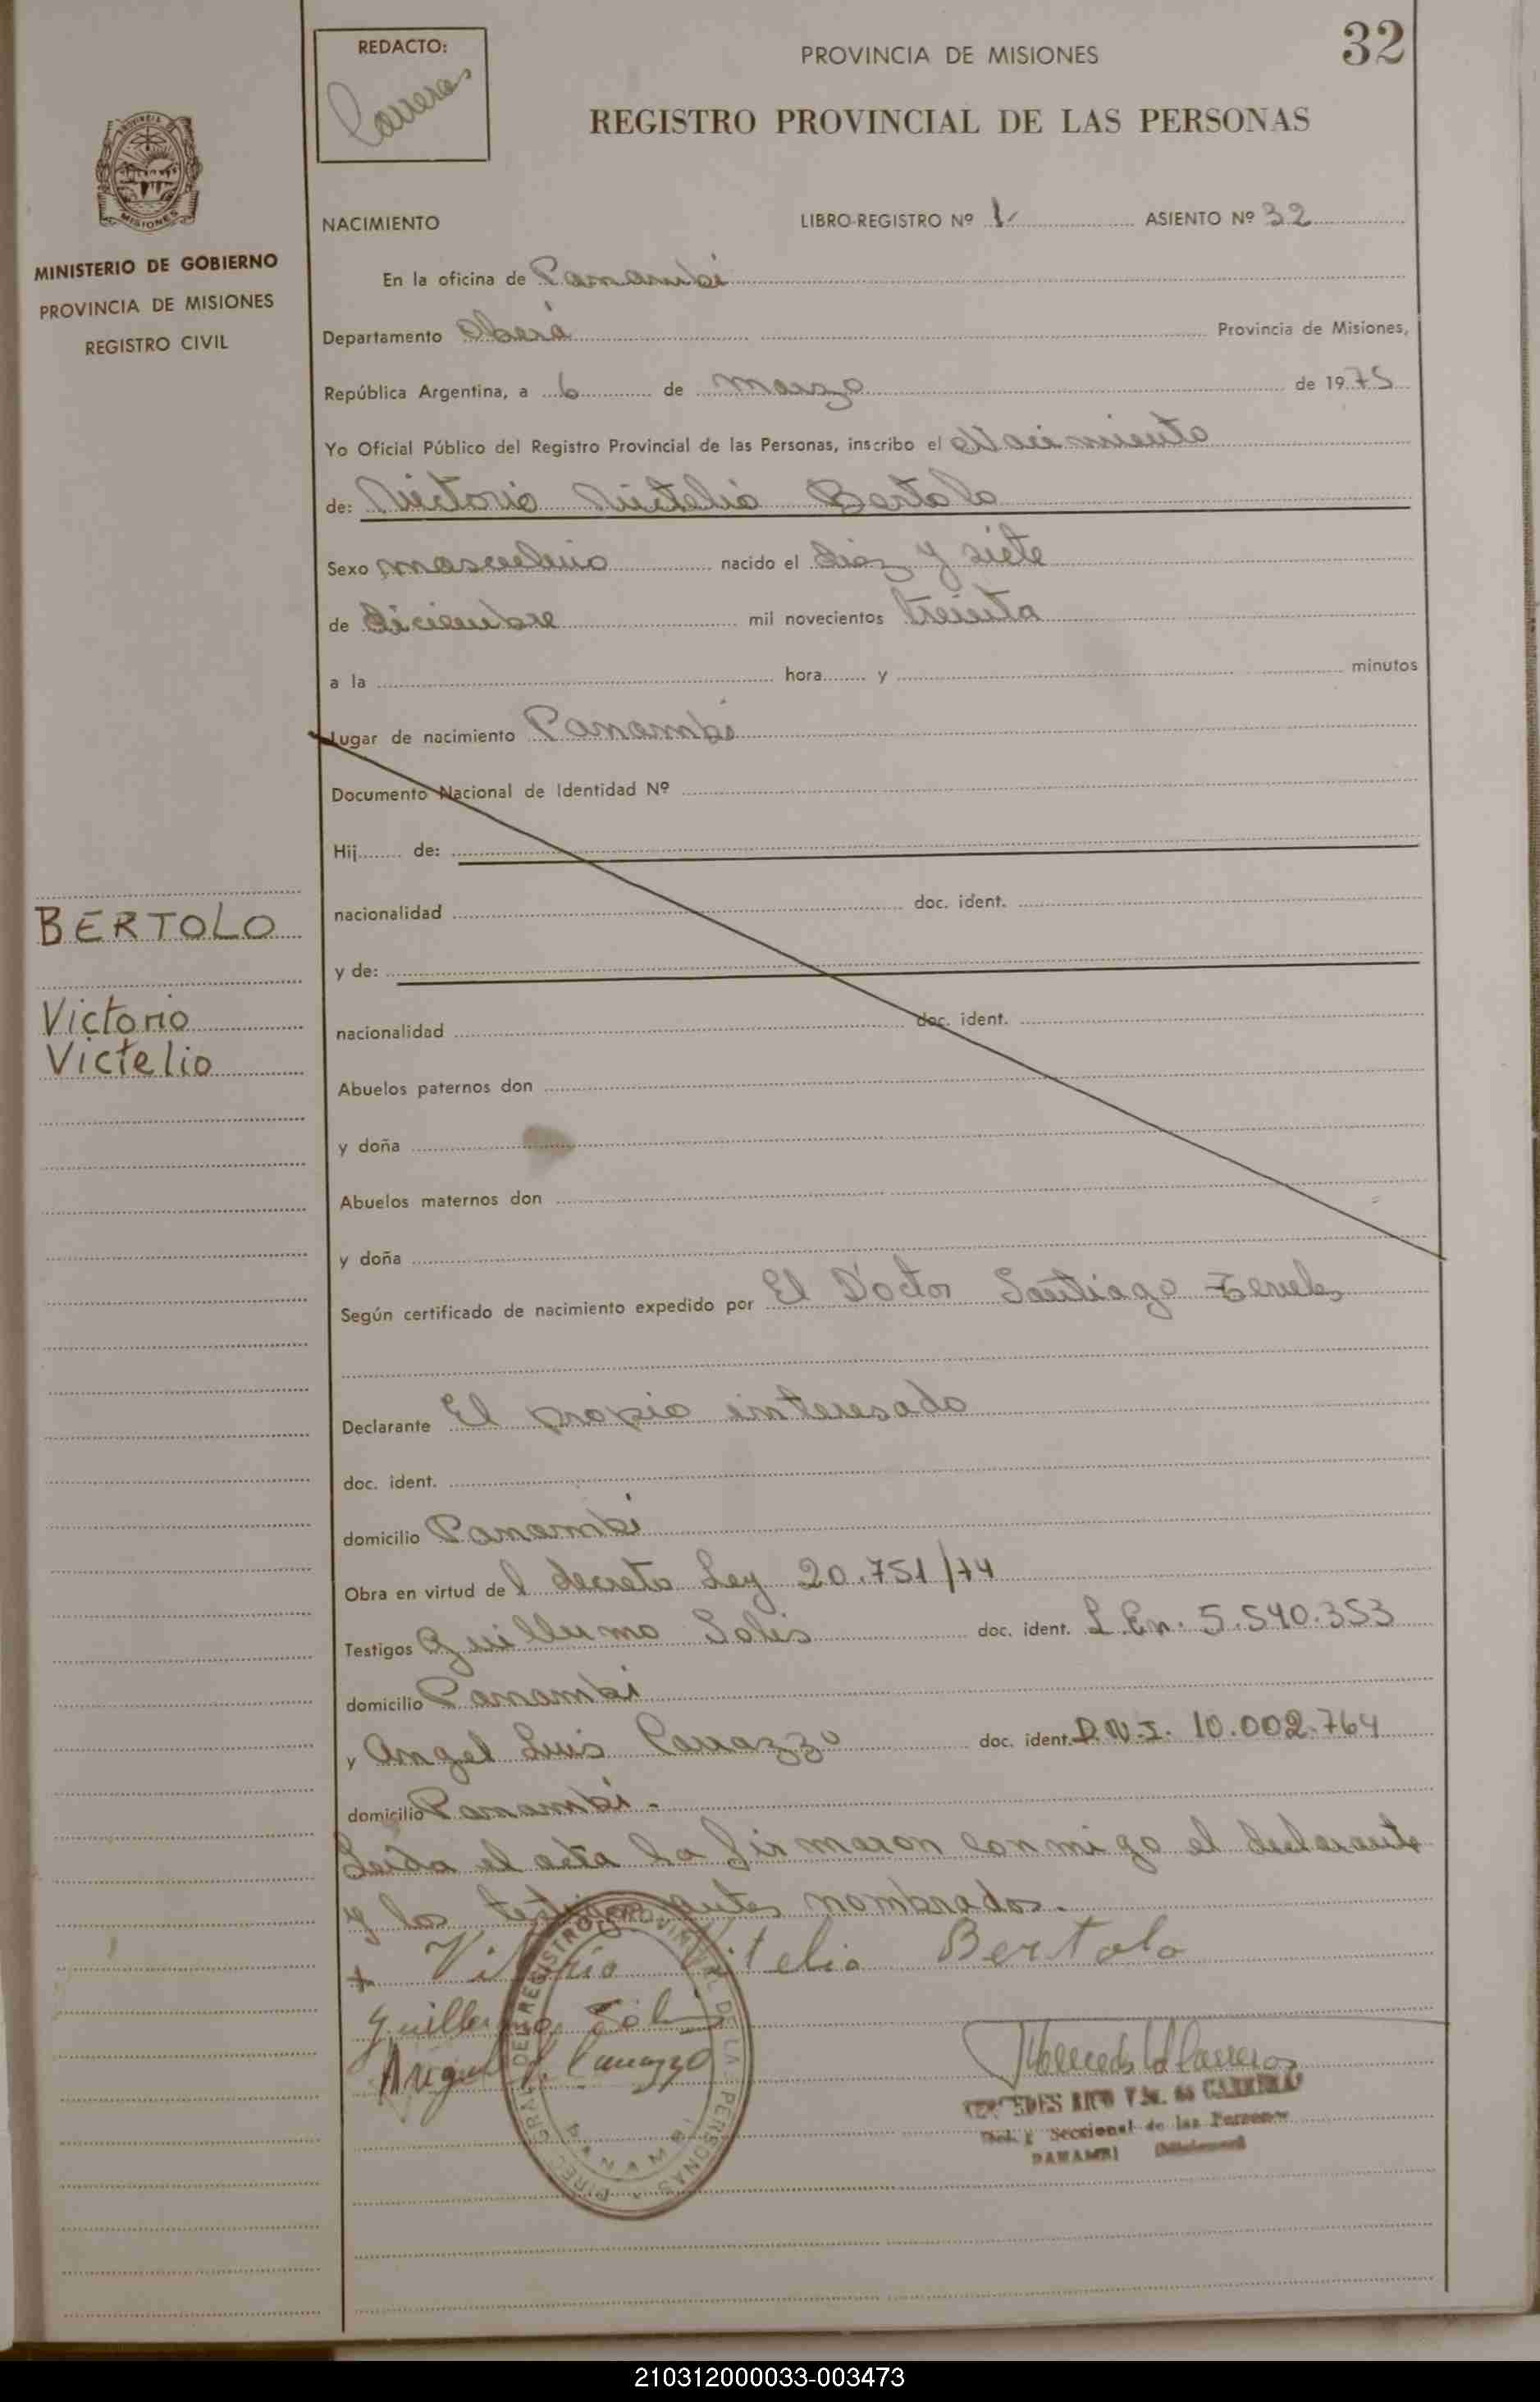 REDACTO:
Carreras
PROVINCIA DE MISIONES
32
REGISTRO PROVINCIAL DE LAS PERSONAS
MISIONES
MINISTERIO DE GOBIERNO
PROVINCIA DE MISIONES
REGISTRO CIVIL
NACIMIENTO LIBRO-REGISTRO Nº 1 ASIENTO Nº 32
En la oficina de Panambí
Departamento Oberá Provincia de Misiones,
República Argentina, a 6 de marzo de 1975
Yo Oficial Público del Registro Provincial de las Personas, inscribo el Nacimiento
de: Victorio Victelio Bertolo
Sexo masculino nacido el diez y siete
de diciembre mil novecientos treinta
a la hora y minutos
Lugar de nacimiento Panambí
Documento Nacional de Identidad Nº
Hij de:
nacionalidad doc. ident.
y de:
nacionalidad doc. ident.
Abuelos paternos don
y doña
Abuelos maternos don
y doña
BERTOLO
Victorio
Victelio
Según certificado de nacimiento expedido por El Doctor Santiago
Declarante El propio interesado
doc. ident.
domicilio Panambí
Obra en virtud del decreto Ley 20.751/74
Testigos Guillermo Solis doc. ident. L.En. 5.540.353
domicilio Panambí
y Angel Luis Carrazzo doc. ident. D.N.I. 10.002.764
domicilio Panambí.
Leída el acta la firmaron conmigo el declarante
y los testigos antes nombrados.
+ Vitorio Vitelio Bertolo
Guillermo Solis
Angel L. Carrazzo
Mercedes Carreras
MERCEDES RICO CARRERAS
Seccional de las Personas
PANAMBI (Misiones)
REGISTRO PROVINCIAL DE LAS PERSONAS
PANAMBI
210312000033-003473